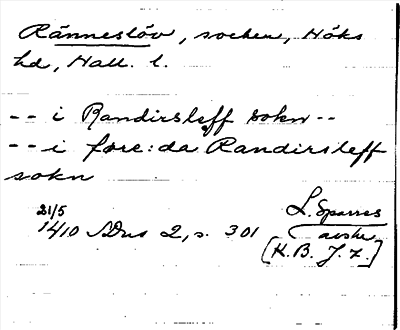 Ränneslöv, socken, Höks
hd, Hall. l.
-- i Randirsleff sokn --
-- i fore:da Randirsleff
sokn
21/5
1410 SDns 2, s. 301
L. Sparres
avskr.
[K. B. J. 7.]